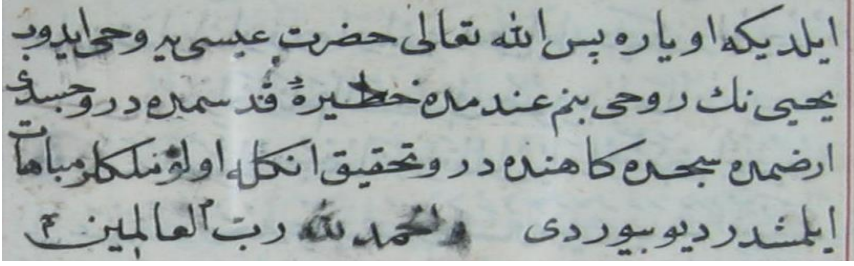 ايلديكه اوياره پس الله تعالى حضرت عيسى يه وحى ايدوب
يحيى نك روحى بنم عندمده حظيرهٔ قدسمده در وجسدى
ارضمده سجده كاهنده در وتحقيق انكله اولو ملكلر مباهات
ايلمشدر ديو بيوردى والحمد لله رب العالمين م